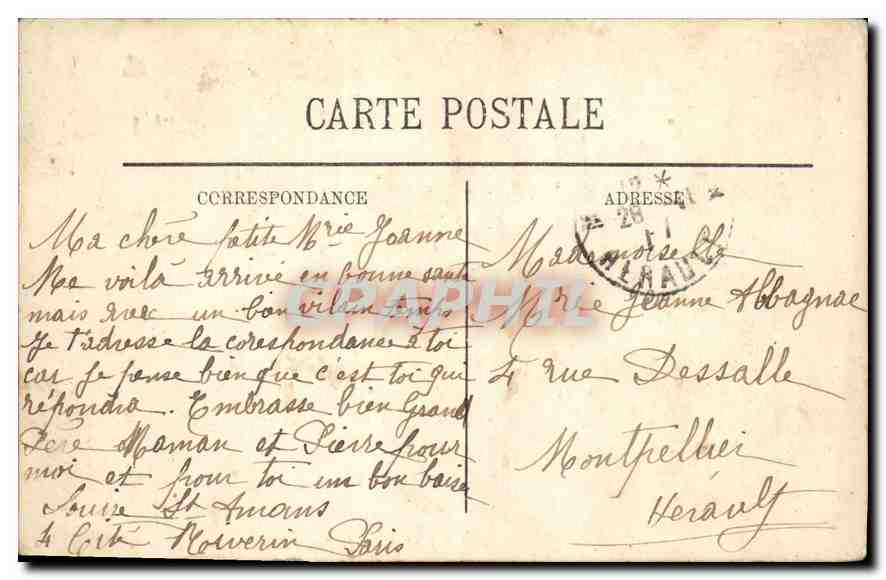 CARTE POSTALE
CORRESPONDANCE
Ma chère petite Mrie Joanne
Me voilà arrivé en bonne santé
mais avec un bon vilain temps
Je t'adresse la corespondance à toi
car Je pense bien que c'est toi qui
répondra. Embrasse bien Grand
Père Maman et Pierre pour
moi et pour toi un bon baise
Louise St Amans
4 Cité Paris
ADRESSE
Mademoiselle
Mrie Jeanne Abbagnac
4 rue Dessalle
Montpellier
Hérault
12 *
28 VI
11
HERAULT
CPAPHIL